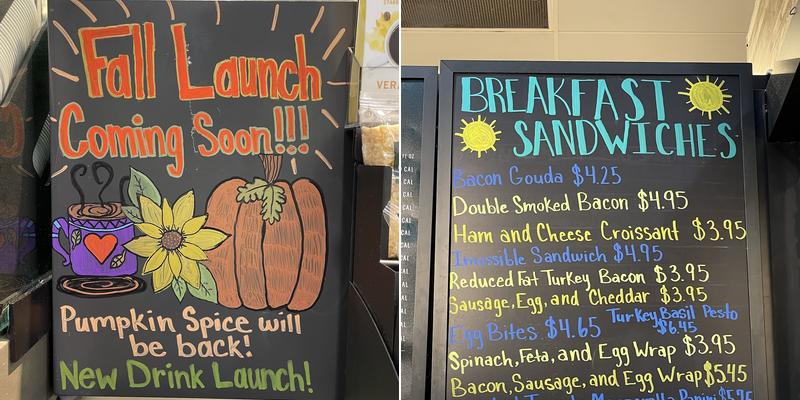 Fall Launch
Coming Soon!!!
Pumpkin Spice will
be back!
New Drink Launch!
VER
BREAKFAST
SANDWICHES
Bacon Gouda $4.25
Double Smoked Bacon $4.95
Ham and Cheese Croissant $3.95
Impossible Sandwich $4.95
Reduced Fat Turkey Bacon $3.95
Sausage, Egg, and Cheddar $3.95
Egg Bites $4.65
Turkey Basil Pesto
$6.45
Spinach, Feta, and Egg Wrap $3.95
Bacon, Sausage, and Egg Wrap $5.45
CAL
CAL
CAL
CAL
CAL
CAL
CAL
CAL
CAL